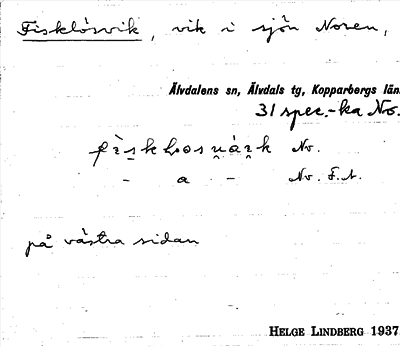 Fisklösvik, vik i sjön Noren,
Älvdalens sn, Älvdals tg, Kopparbergs län.
31 spec.-ka No.
No.
- a - No. F.t.
på västra sidan
HELGE LINDBERG 1937